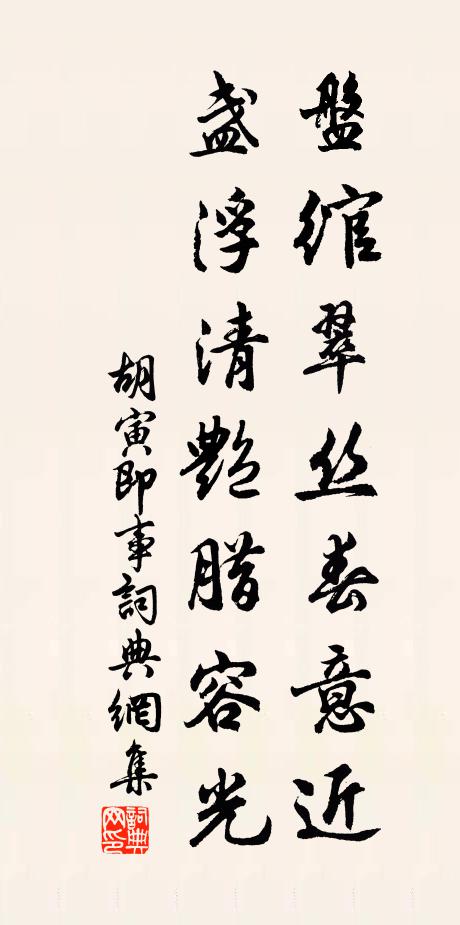 盤綰翠丝春意近
盏浮清艷腊容光
胡寅即事詞典網集
詞典网印